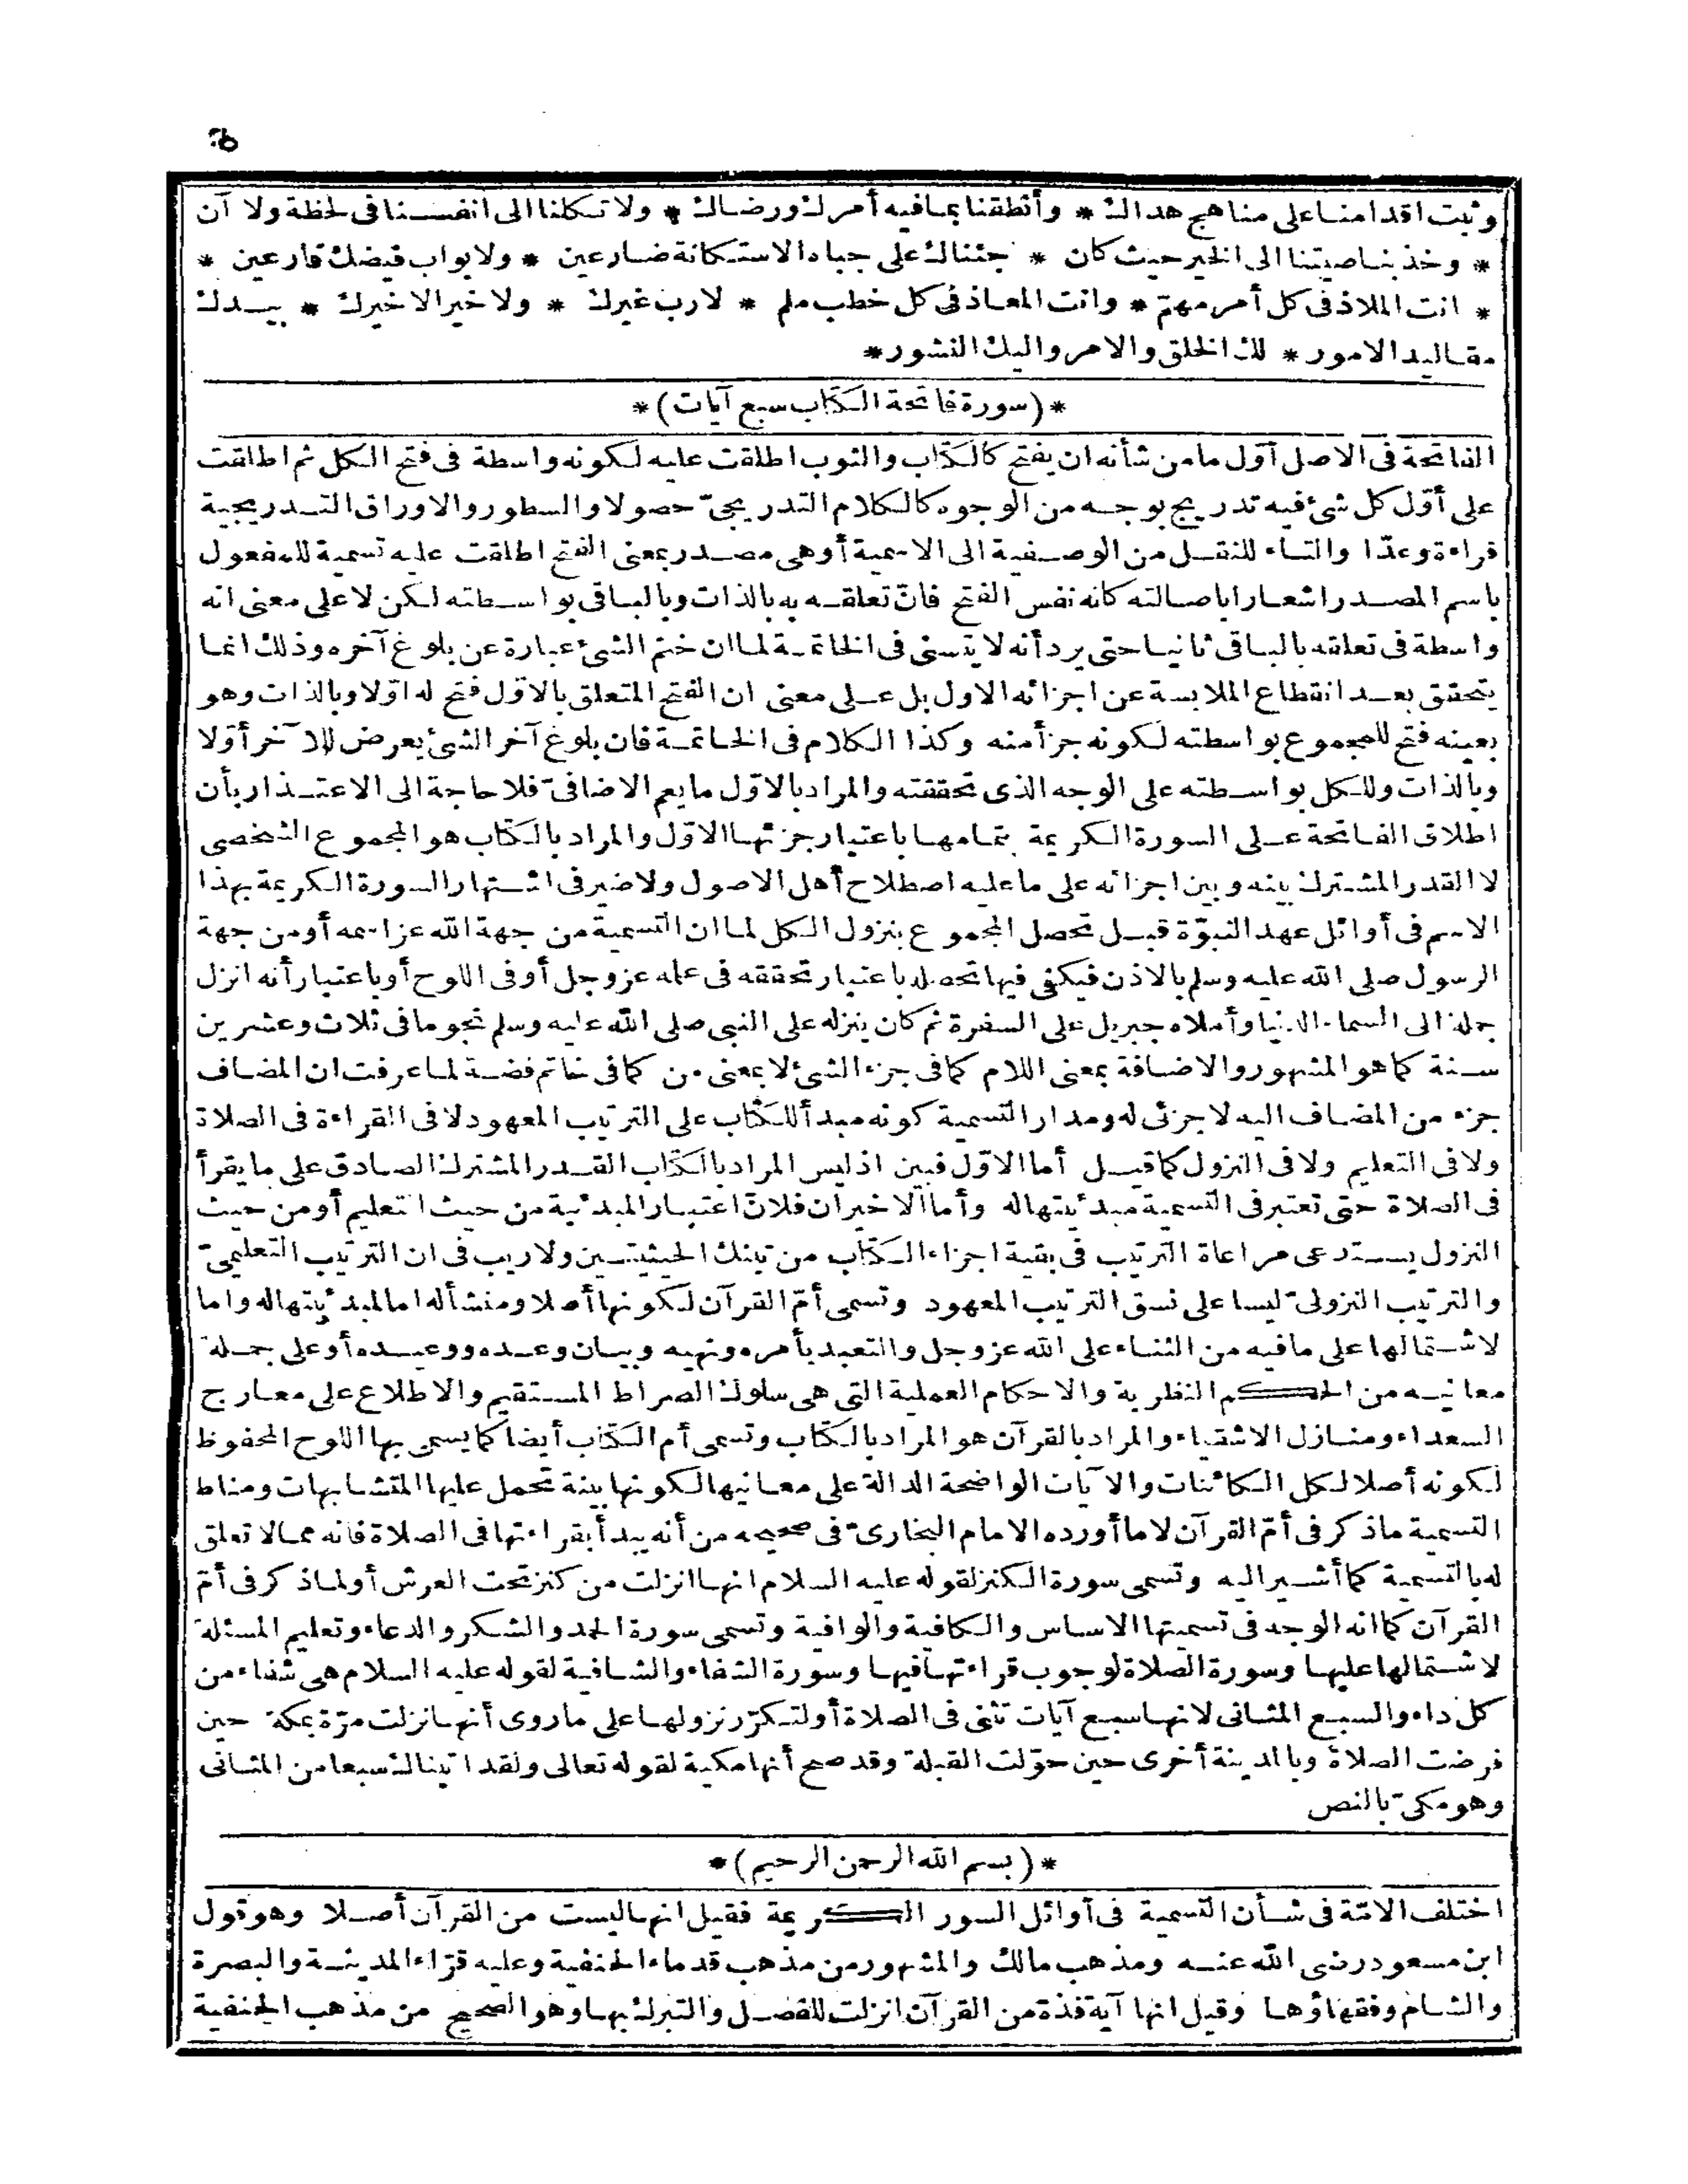 وثبت اقدامنا على مناهج هداك * وأنطقنا بما فيه أمرك ورضاك * ولا تكلنا الى انفسنا فى لحظة ولا آن
* وخذ بناصيتنا الى الخير حيث كان * جئناك على جباه الاستكانة ضارعين * ولابواب فيضك قارعين *
* انت الملاذ فى كل أمر مهمّ * وانت المعاذ فى كل خطب ملم * لا رب غيرك * ولا خير الا خيرك * بيدك
مقاليد الامور * لك الخلق والامر واليك النشور *
* (سورة فاتحة الكتاب سبع آيات) *
الفاتحة فى الاصل أوّل ما من شأنه ان يفتح كالكتاب والثوب اطلقت عليه لكونه واسطة فى فتح الكل ثم اطلقت
على أوّل كل شئ فيه تدريج بوجه من الوجوه كالكلام التدريجىّ حصولا والسطور والاوراق التدريجية
قراءة وعدّا والتاء للنقل من الوصفية الى الاسمية أو هى مصدر بمعنى الفتح اطلقت عليه تسمية للمفعول
باسم المصدر اشعارا باصالته كانه نفس الفتح فانّ تعلقه به بالذات وبالباقى بواسطته لكن لا على معنى انه
واسطة فى تعلقه بالباقى ثانيا حتى يرد أنه لا يتسنى فى الخاتمة لما ان ختم الشئ عبارة عن بلوغ آخره وذلك انما
يتحقق بعد انقطاع الملابسة عن اجزائه الاول بل على معنى ان الفتح المتعلق بالاوّل فتح له اوّلا وبالذات وهو
بعينه فتح للمجموع بواسطته لكونه جزأ منه وكذا الكلام فى الخاتمة فان بلوغ آخر الشئ يعرض للآخر أوّلا
وبالذات وللكل بواسطته على الوجه الذى تحققته والمراد بالاوّل ما يعم الاضافىّ فلا حاجة الى الاعتذار بأن
اطلاق الفاتحة على السورة الكريمة بتمامها باعتبار جزئها الاوّل والمراد بالكتاب هو المجموع الشخصى
لا القدر المشترك بينه وبين اجزائه على ما عليه اصطلاح أهل الاصول ولا ضير فى اشتهار السورة الكريمة بهذا
الاسم فى أوائل عهد النبوّة قبل تحصل المجموع بنزول الكل لما ان التسمية من جهة الله عز اسمه أو من جهة
الرسول صلى الله عليه وسلم بالاذن فيكفى فيها تحصله باعتبار تحققه فى علمه عز وجل أو فى اللوح أو باعتبار أنه انزل
جملة الى السماء الدنيا وأملاه جبريل على السفرة ثم كان ينزله على النبى صلى الله عليه وسلم نجوما فى ثلاث وعشرين
سنة كما هو المشهور والاضافة بمعنى اللام كما فى جزء الشئ لا بمعنى من كما فى خاتم فضة لما عرفت ان المضاف
جزء من المضاف اليه لا جزئى له ومدار التسمية كونه مبدأ للكتاب على الترتيب المعهود لا فى القراءة فى الصلاة
ولا فى التعليم ولا فى النزول كما قيل أما الاوّل فبين اذ ليس المراد بالكتاب القدر المشترك الصادق على ما يقرأ
فى الصلاة حتى تعتبر فى التسمية مبدئيتها له وأما الاخيران فلانّ اعتبار المبدئية من حيث التعليم أو من حيث
النزول يستدعى مراعاة الترتيب فى بقية اجزاء الكتاب من تينك الحيثيتين ولا ريب فى ان الترتيب التعليمىّ
والترتيب النزولىّ ليسا على نسق الترتيب المعهود وتسمى أمّ القرآن لكونها أصلا ومنشأ له اما لمبدئيتها له واما
لاشتمالها على ما فيه من الثناء على الله عز وجل والتعبد بأمره ونهيه وبيان وعده ووعيده أو على جملة
معانيه من الحكم النظرية والاحكام العملية التى هى سلوك الصراط المستقيم والاطلاع على معارج
السعداء ومنازل الاشقياء والمراد بالقرآن هو المراد بالكتاب وتسمى أم الكتاب أيضا كما يسمى بها اللوح المحفوظ
لكونه أصلا لكل الكائنات والآيات الواضحة الدالة على معانيها لكونها بينة تحمل عليها المتشابهات ومناط
التسمية ما ذكر فى أمّ القرآن لا ما أورده الامام البخارىّ فى صحيحه من أنه يبدأ بقراءتها فى الصلاة فانه مما لا تعلق
له بالتسمية كما أشير اليه وتسمى سورة الكنز لقوله عليه السلام انها انزلت من كنز تحت العرش أو لما ذكر فى أمّ
القرآن كما انه الوجه فى تسميتها الاساس والكافية والوافية وتسمى سورة الحمد والشكر والدعاء وتعليم المسئلة
لاشتمالها عليها وسورة الصلاة لوجوب قراءتها فيها وسورة الشفاء والشافية لقوله عليه السلام هى شفاء من
كل داء والسبع المثانى لانها سبع آيات تثنى فى الصلاة أو لتكرّر نزولها على ما روى أنها نزلت مرّة بمكة حين
فرضت الصلاة وبالمدينة أخرى حين حوّلت القبلة وقد صح أنها مكية لقوله تعالى ولقد آتيناك سبعا من المثانى
وهو مكىّ بالنص
* (بسم الله الرحمن الرحيم) *
اختلف الائمة فى شأن التسمية فى أوائل السور الكريمة فقيل انها ليست من القرآن أصلا وهو قول
ابن مسعود رضى الله عنه ومذهب مالك والمشهور من مذهب قدماء الحنفية وعليه قرّاء المدينة والبصرة
والشام وفقهاؤها وقيل انها آية فذة من القرآن انزلت للفصل والتبرك بها وهو الصحيح من مذهب الحنفية